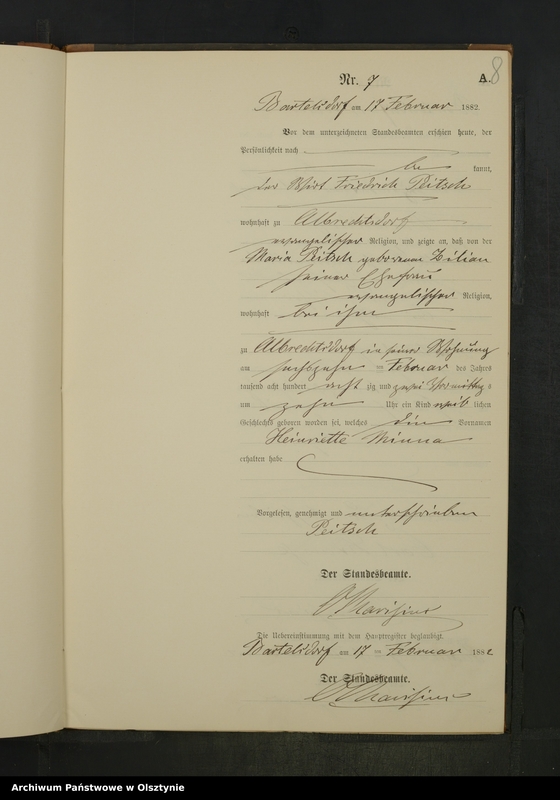 Nr. 7
A.
8
Bartelsdorf am 17 Februar 1882.
Vor dem unterzeichneten Standesbeamten erschien heute, der
Persönlichkeit nach
be kannt,
der Wirt Friedrich Peitsch
wohnhaft zu Albrechtsdorf
evangelischer Religion, und zeigte an, daß von der
Maria Peitsch geborenen Zilian
seiner Ehefrau
evangelischer Religion,
wohnhaft bei ihm
zu Albrechtsdorf in seiner Wohnung
am sechszehn ten Februar des Jahres
tausend acht hundert acht zig und zwei Vormittag s
um zehn Uhr ein Kind weib lichen
Geschlechts geboren worden sei, welches die Vornamen
Heinriette Minna
erhalten habe
Vorgelesen, genehmigt und unterschrieben
Peitsch
Der Standesbeamte.
Die Uebereinstimmung mit dem Hauptregister beglaubigt.
Bartelsdorf am 17 ten Februar 1882.
Der Standesbeamte.
Archiwum Państwowe w Olsztynie